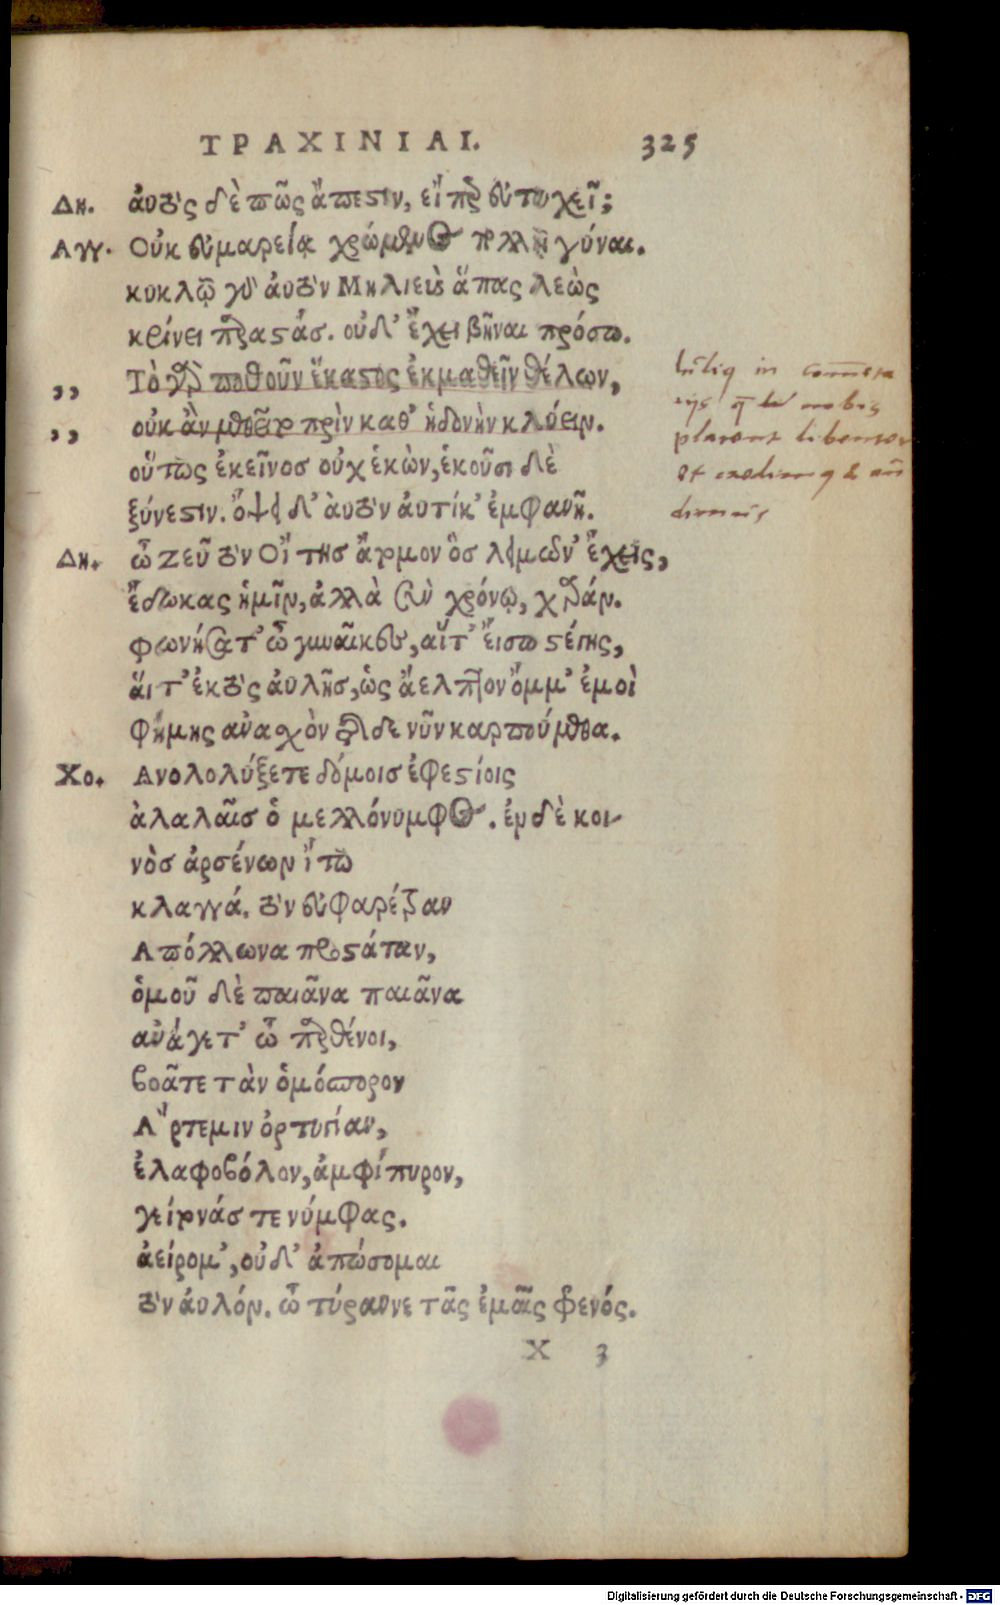 ΤΡΑΧΙΝΙΑΙ. 325
Δη. ἀυτὸς δὲ πῶς ἄπεστιν, εἴπερ εὐτυχεῖ;
Αγγ. Οὐκ εὐμαρείᾳ χρώμενος πολλῇ γύναι.
κυκλῷ γὰρ ἀυτὸν Μηλιεὺς ἅπας λεὼς
κρίνει παραστάσ. οὐδ' ἔχει βῆναι πρόσω.
,, Τὸ γὰρ ποθοῦν ἕκαστος ἐκμαθεῖν θέλων,
,, οὐκ ἂν μεθεῖτο πρὶν καθ' ἡδονὴν κλύειν.
οὕτως ἐκεῖνοσ οὐχ ἑκὼν, ἑκοῦσι δὲ
ξύνεστιν. ὄψει δ' ἀυτὸν ἀυτίκ' ἐμφανῆ.
Δη. ὦ Ζεῦ τὸν Οἴτησ ἄτομον ὃσ λειμῶν' ἔχεις,
ἔδωκας ἡμῖν, ἀλλὰ σὺν χρόνῳ, χαράν.
φωνήσατ' ὦ γυναῖκες, αἵτ' ἔισω στέγης,
ἅιτ' ἐκτὸς ἀυλῆσ, ὡς ἄελπτον ὄμμ' ἐμοὶ
φήμης ἀναχὸν τῆσδε νῦν καρπούμεθα.
Χο. Ανολολύξετε δόμοισ ἐφεστίοις
ἀλαλαῖσ ὁ μελλόνυμφος. ἐν δὲ κοι-
νὸσ ἀρσένων ἴτω
κλαγγά. τὸν εὐφαρέτραν
Απόλλωνα προστάταν,
ὁμοῦ δὲ παιᾶνα παιᾶνα
ἀνάγετ' ὦ παρθένοι,
βοᾶτε τὰν ὁμόσπορον
Ἄρτεμιν ὀρτυγίαν,
ἐλαφοβόλον, ἀμφίπυρον,
γείτονάσ τε νύμφας.
ἀείρομ', οὐδ' ἀπώσομαι
τὸν ἀυλόν. ὦ τύραννε τᾶς ἐμᾶς φρενός.
X 3
in
nobis
libenter
et
Digitalisierung gefördert durch die Deutsche Forschungsgemeinschaft - DFG